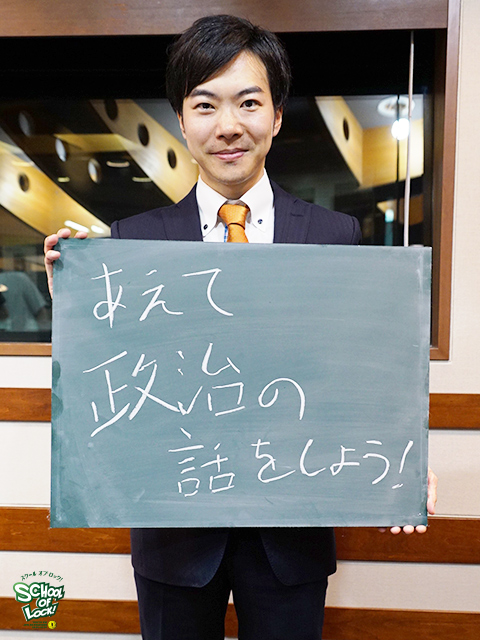 あえて
政治の
話をしよう!
スクール オブ ロック!
SCHOOL
OF
LOCK!